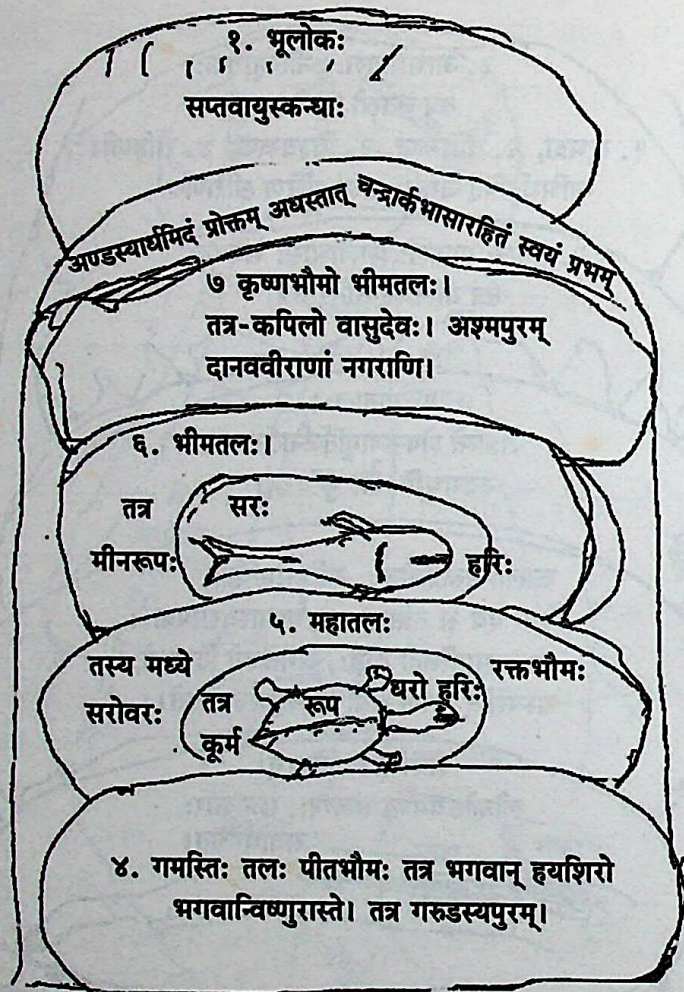 १. भूलोकः
सप्तवायुस्कन्धाः
अण्डस्यार्धमिदं प्रोक्तम् अधस्तात् चन्द्रार्कभासारहितं स्वयं प्रभम्
७ कृष्णभौमो भीमतलः।
तत्र-कपिलो वासुदेवः। अश्मपुरम्
दानववीराणां नगराणि।
६. भीमतलः।
तत्र सरः
मीनरूपः हरिः
५. महातलः
तस्य मध्ये रक्तभौमः
सरोवरः तत्र रूप धरो हरिः
कूर्म
४. गमस्तिः तलः पीतभौमः तत्र भगवान् हयशिरो
भगवान्विष्णुरास्ते। तत्र गरुडस्यपुरम्।